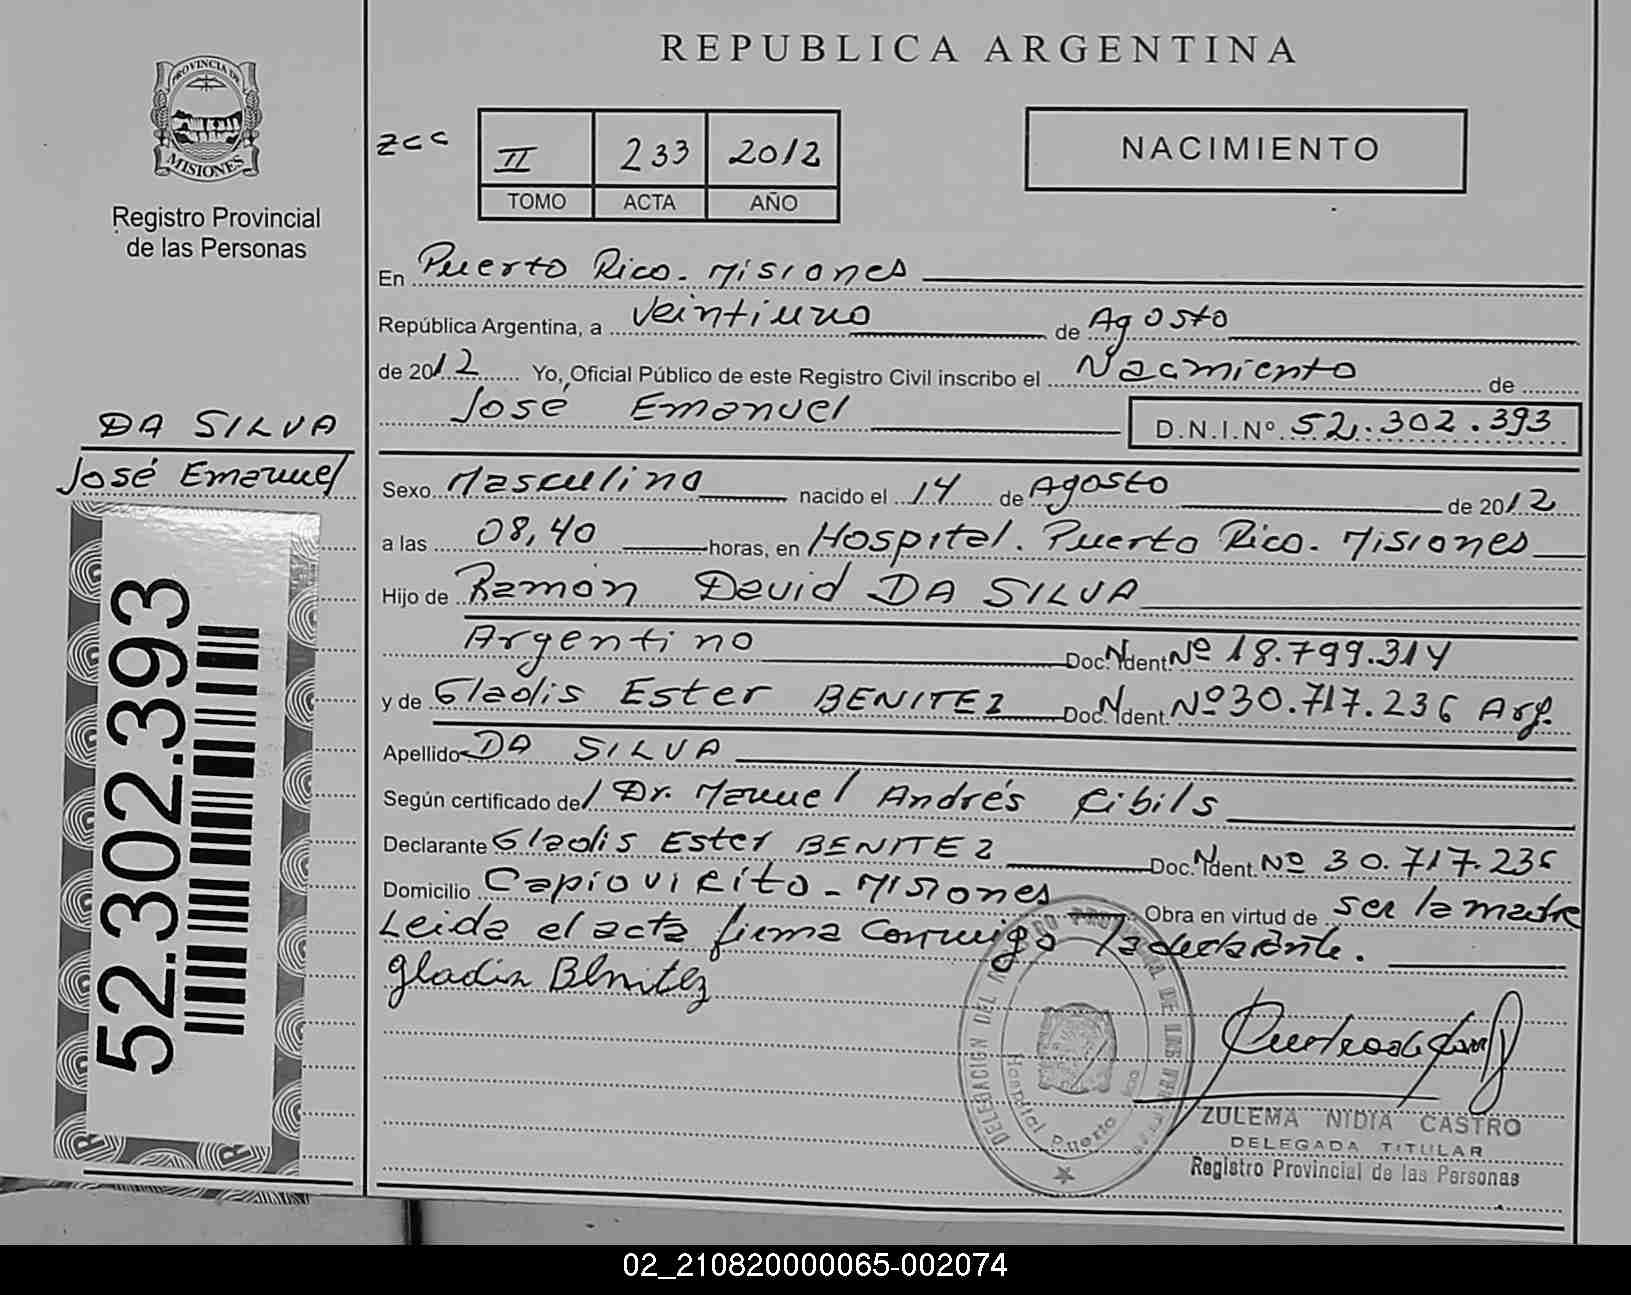 REPUBLICA ARGENTINA
PROVINCIA DE
MISIONES
Registro Provincial
de las Personas
zcc
II 233 2012
TOMO ACTA AÑO
NACIMIENTO
DA SILVA
José Emanuel
52.302.393
En Puerto Rico. Misiones
República Argentina, a veintiuno de Agosto
de 2012 Yo, Oficial Público de este Registro Civil inscribo el Nacimiento de
José Emanuel D.N.I.Nº 52.302.393
Sexo Masculino nacido el 14 de Agosto de 2012
a las 08,40 horas, en Hospital. Puerto Rico. Misiones
Hijo de Ramón David DA SILVA
Argentino Doc. N. Ident. Nº 18.799.314
y de Gladis Ester BENITEZ Doc. N. Ident. Nº 30.717.236 Arg.
Apellido DA SILVA
Según certificado del Dr. Manuel Andrés Cibils
Declarante Gladis Ester BENITEZ Doc. N. Ident. Nº 30.717.236
Domicilio Capioviricito - Misiones Obra en virtud de ser la madre
Leida el acta firma conmigo la declarante.
Gladis Benitez
DELEGACION DEL
Hospital Puerto
ZULEMA NIDIA CASTRO
DELEGADA TITULAR
Registro Provincial de las Personas
02_210820000065-002074